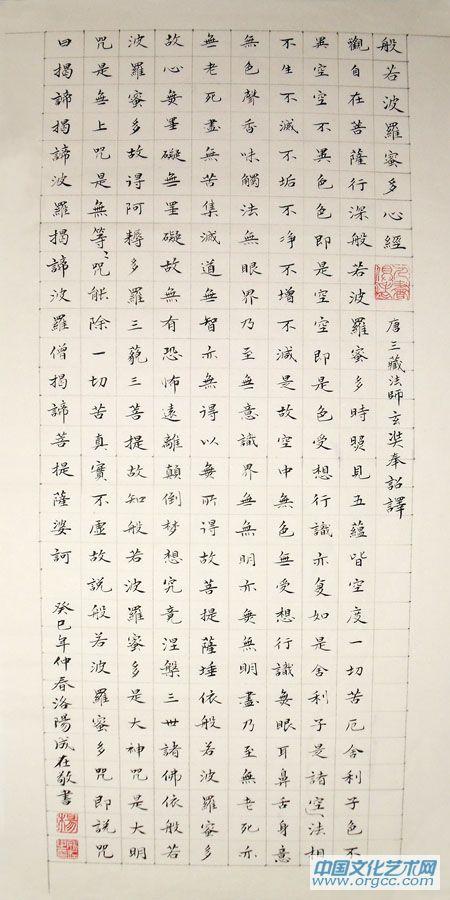 般若波羅蜜多心經
唐三藏法師玄奘奉詔譯
觀自在菩薩行深般若波羅蜜多時照見五蘊皆空度一切苦厄舍利子色不
異空空不異色色即是空空即是色受想行識亦复如是舍利子是諸空法相
不生不滅不垢不净不增不減是故空中無色無受想行識無眼耳鼻舌身意
無色聲香味觸法無眼界乃至無意識界無無明亦無無明盡乃至無老死亦
無老死盡無苦集滅道無智亦無得以無所得故菩提薩埵依般若波羅蜜多
故心無罣礙無罣礙故無有恐怖遠離顛倒梦想究竟涅槃三世諸佛依般若
波羅蜜多故得阿耨多羅三藐三菩提故知般若波羅蜜多是大神咒是大明
咒是無上咒是無等、咒能除一切苦真實不虛故說般若波羅蜜多咒即說咒
曰揭諦揭諦波羅揭諦波羅僧揭諦菩提薩婆訶
癸巳年仲春洛陽成在敬書
中国文化艺术网
www.orgcc.com